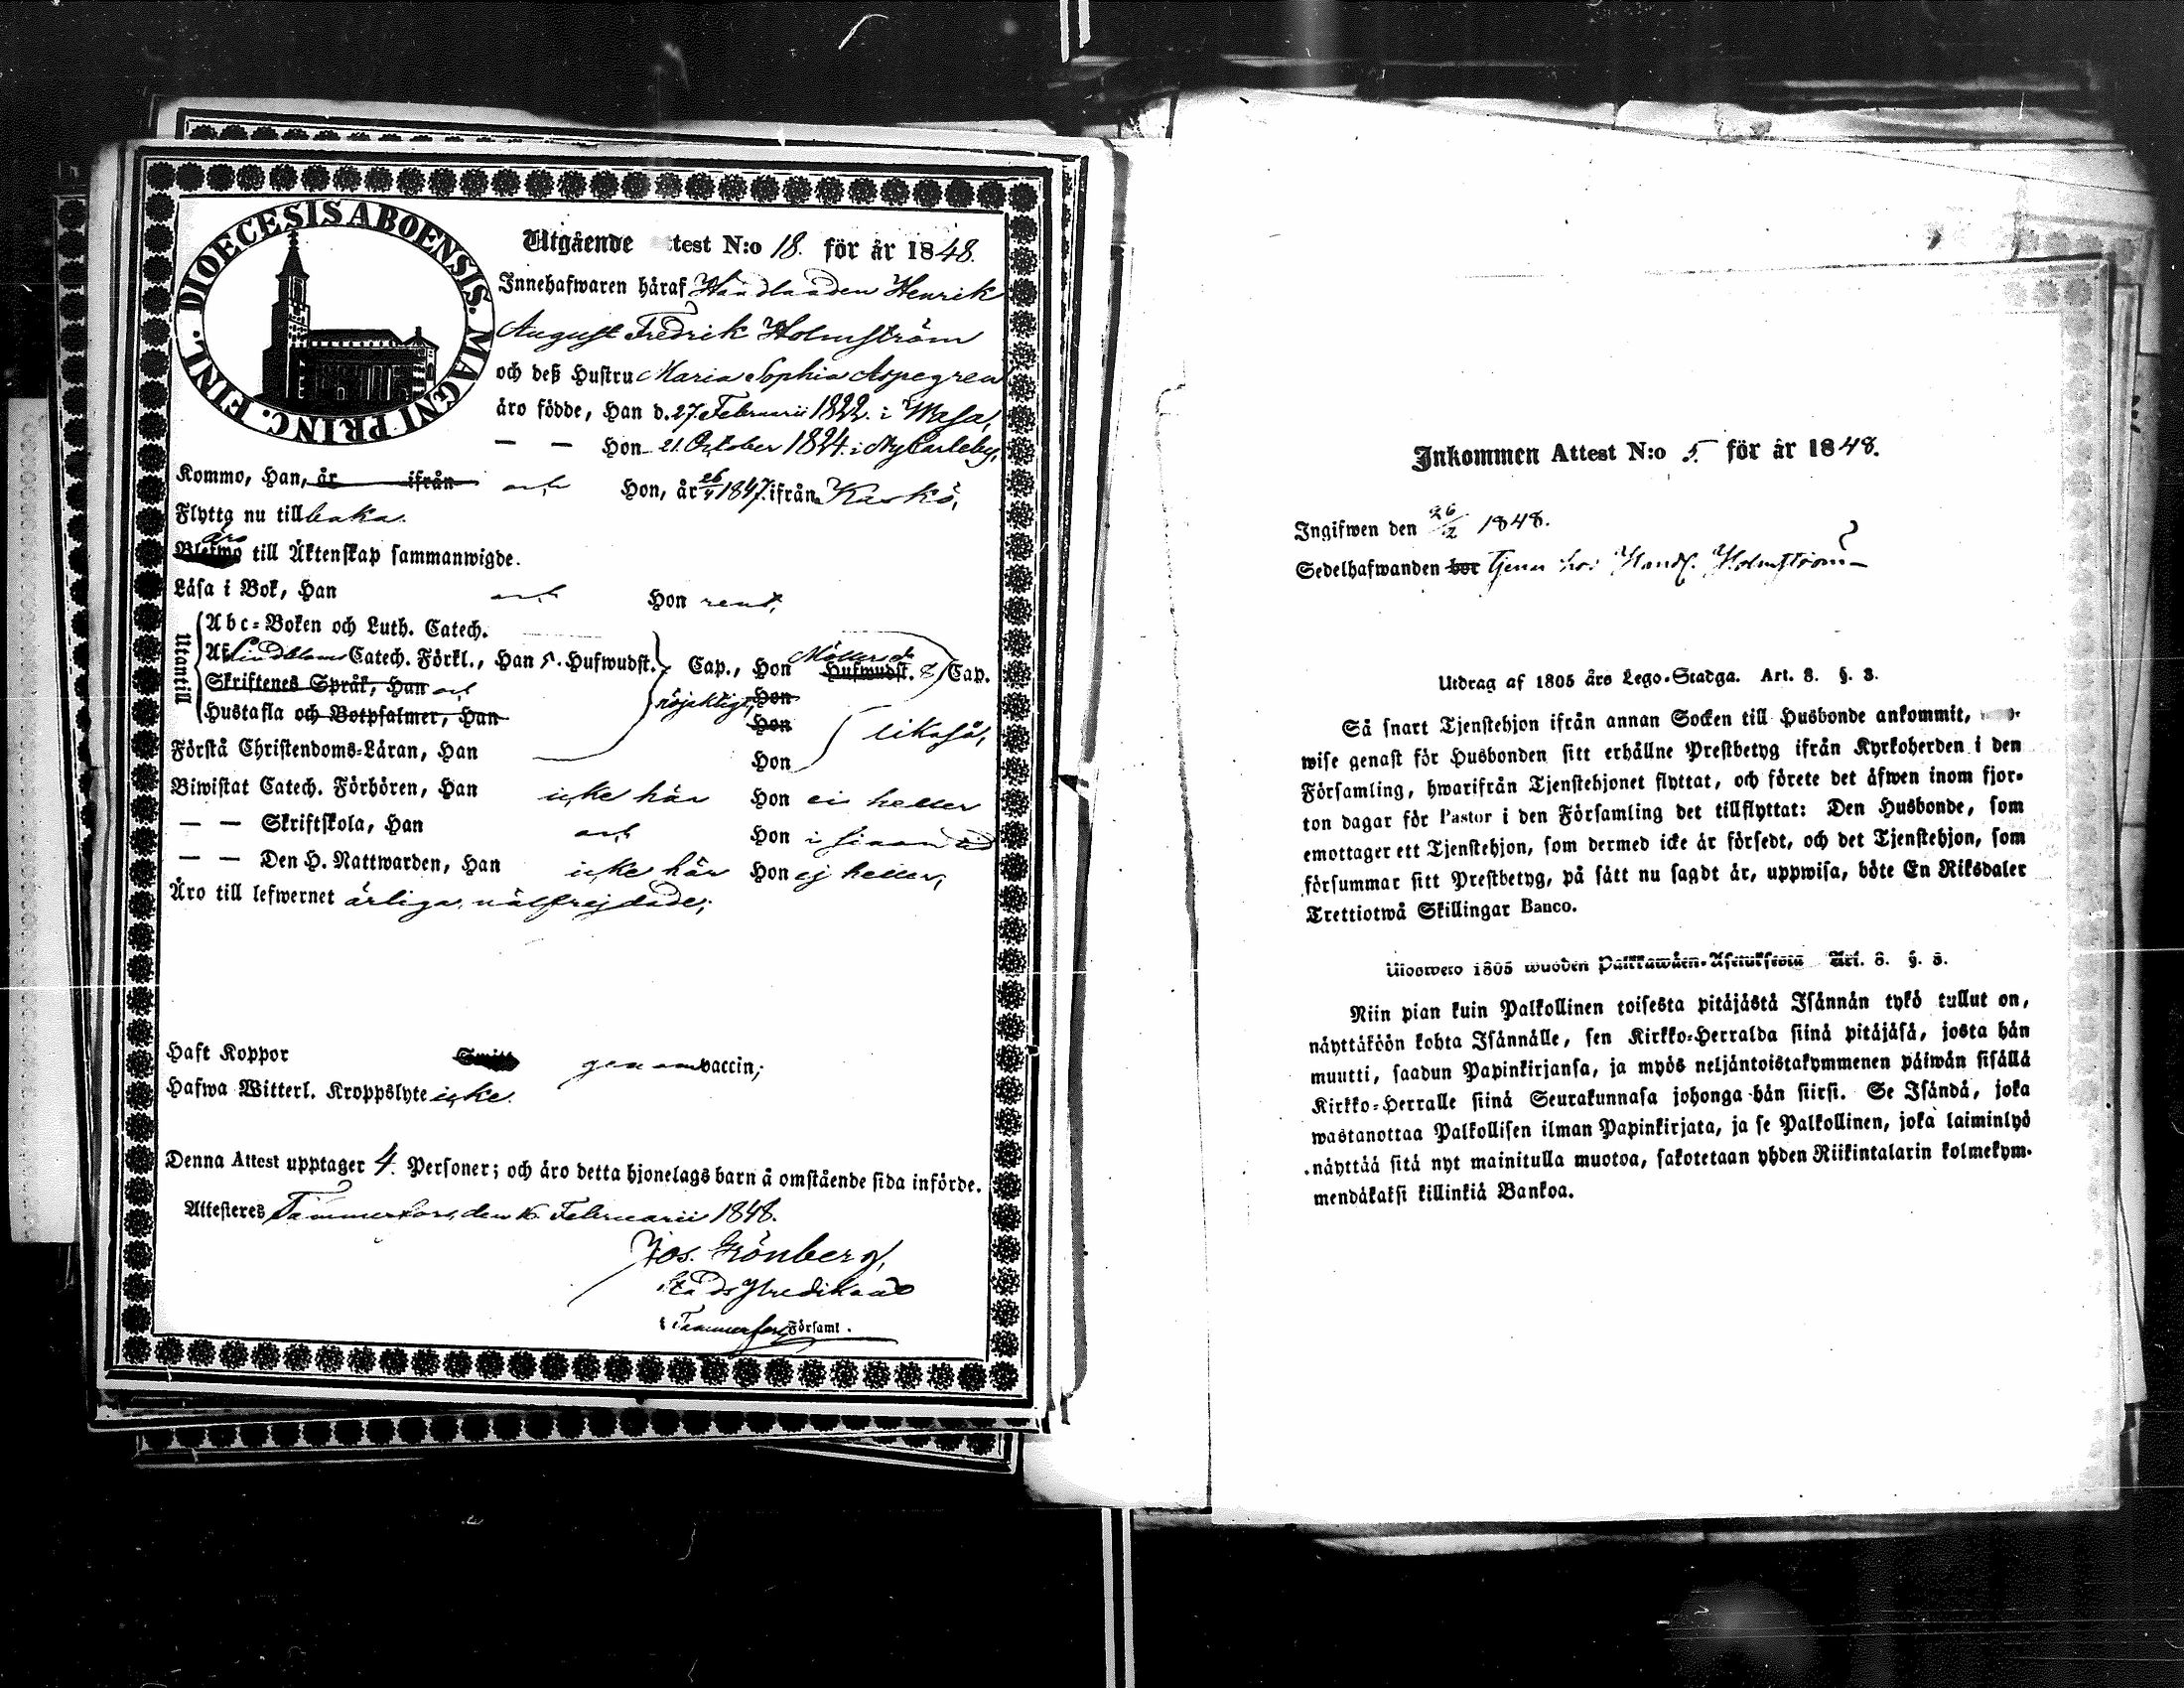 DIOECESIS ABOENSIS. MAGNI PRINC. FINL.
Utgående test N:o 18. för år 1848.
Innehafwaren häraf Handlanden Henrik
August Fredrik Holmström
och deß Hustru Maria Sophia Aspegren
äro födde, Han d. 27 Februarii 1822. i Wasa,
— — Hon 21. October 1824. i NyCarleby,
Kommo, Han, år ifrån och Hon, år 26/4 1847. ifrån Kaskö,
Flytta nu tillbaka.
äro
till Äktenskap sammanwigde.
Läsa i Bok, Han och Hon rent,
Utantill
Abc-Boken och Luth. Catech.
Af Lindbloms Catech. Förkl., Han 5. Hufwudst. Cap., Hon Möllers Hufwudst. 8 Cap.
Skriftenes Språk, Han och nöjaktigt, Hon
Hustafla och Botpsalmer, Han Hon likaså,
Förstå Christendoms-Läran, Han Hon
Biwistat Catech. Förhören, Han icke här Hon ei heller
— — Skriftskola, Han och Hon i sinom tid
— — Den H. Nattwarden, Han icke här Hon ej heller,
Äro till lefwernet ärliga, wälfrejdade;
Haft Koppor genom vaccin;
Hafwa Witterl. Kroppslyte icke.
Denna Attest upptager 4. Personer; och äro detta hjonelags barn å omstående sida införde.
Attesteres Tammerfors, den 16. Februarii 1848.
Jos. Grönberg,
Stads Predikant
i Tammerfors Församl.
Inkommen Attest N:o 5. för år 1848.
Ingifwen den 26/2 1848.
Sedelhafwanden bor tjenar hos Handl. Holmström
Utdrag af 1805 års Lego-Stadga. Art. 8. §. 3.
Så snart Tjenstehjon ifrån annan Socken till Husbonde ankommit,
wise genast för Husbonden sitt erhållne Prestbetyg ifrån Kyrkoherden i den
Församling, hwarifrån Tjenstehjonet flyttat, och förete det äfwen inom fjor-
ton dagar för Pastor i den Församling det tillflyttat: Den Husbonde, som
emottager ett Tjenstehjon, som dermed icke är försedt, och det Tjenstehjon, som
försummar sitt Prestbetyg, på sätt nu sagdt är, uppwisa, böte En Riksdaler
Trettiotwå Skillingar Banco.
Ulosweto 1805 wuoden Palkkawäen-Asetuksesta Art. 8. §. 3.
Niin pian kuin Palkollinen toisesta pitäjästä Isännän tykö tullut on,
näyttäköön kohta Isännälle, sen Kirkko-Herralda siinä pitäjäsä, josta hän
muutti, saadun Papinkirjansa, ja myös neljäntoistakymmenen päiwän sisällä
Kirkko-Herralle siinä Seurakunnasa johonga hän siirsi. Se Isändä, joka
wastanottaa Palkollisen ilman Papinkirjata, ja se Palkollinen, joka laiminlyö
näyttää sitä nyt mainitulla muotoa, sakotetaan yhden Riikintalarin kolmekym-
mendäkaksi killinkiä Bankoa.